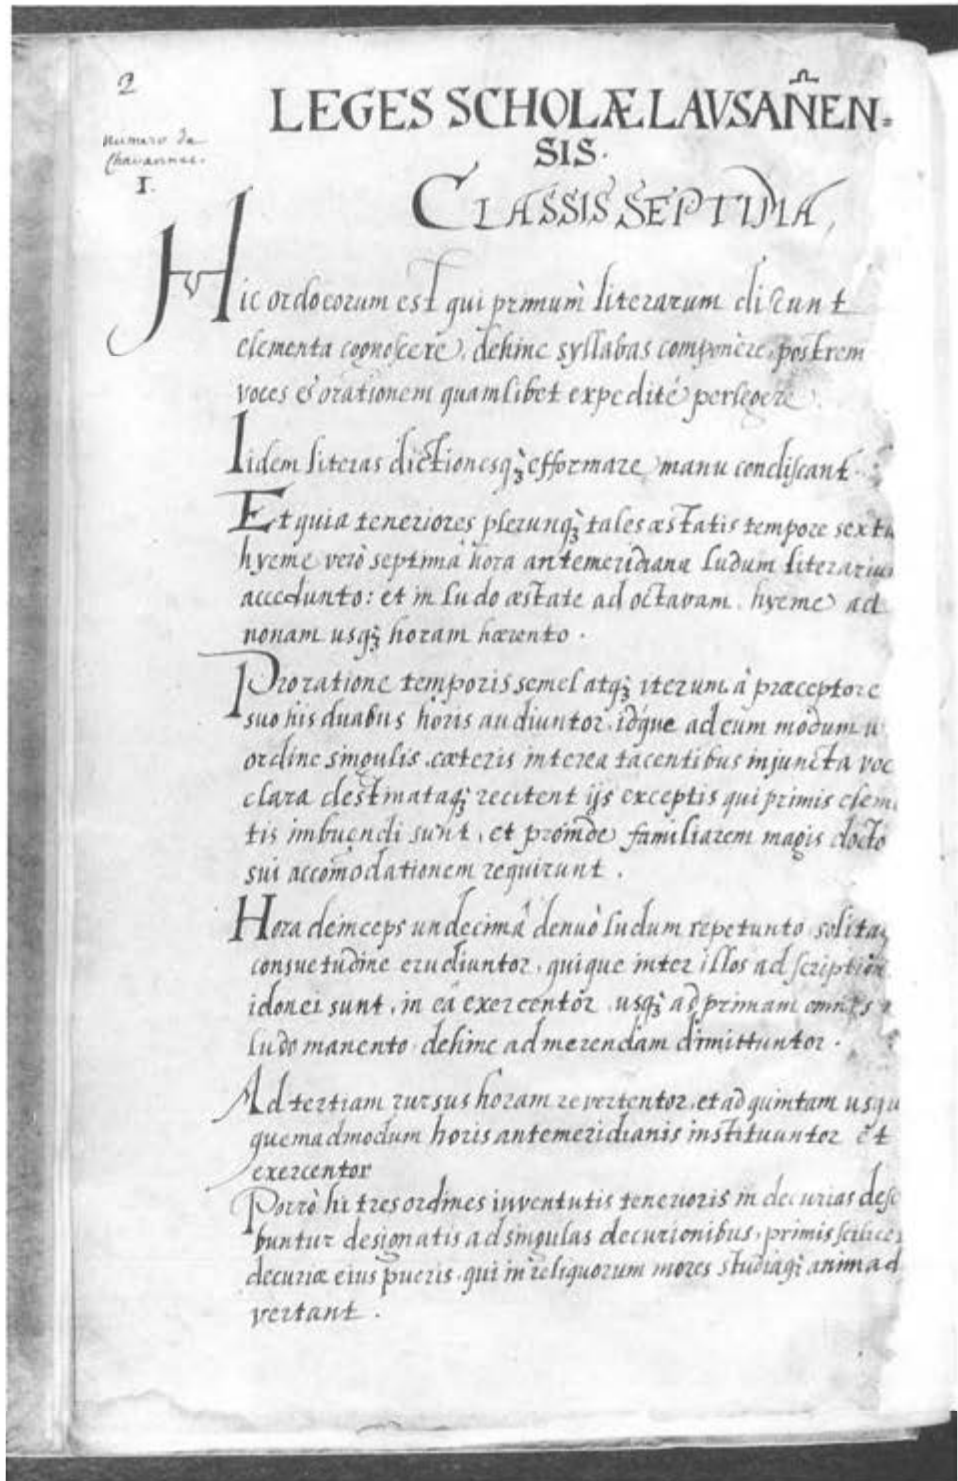 2
LEGES SCHOLÆ LAVSAÑEN=
SIS.
Numero de
Chavannes.
I.
CLASSIS SEPTIMA,
Hic ordo eorum est qui primum literarum discunt
elementa cognoscere, dehinc syllabas componere, postrem
voces et orationem quamlibet expedité perlegere.
Iidem literas dictionesq₃ efformare manu condiscant.
Et quia teneriores plerunq₃ tales æstatis tempore sexta
hyeme verò septimâ hora antemeridiana ludum literarium
accedunto: et in ludo æstate ad octavam, hyeme ad
nonam usq₃ horam hærento.
Pro ratione temporis semel atq₃ iterum à præceptore
suo his duabus horis audiuntor, idque ad eum modum u
ordine singulis, cæteris interea tacentibus injuncta voc
clara destinataq₃ recitent ijs exceptis qui primis elem
tis imbuendi sunt, et proinde familiarem magis docto
sui accomodationem requirunt.
Hora deinceps undecimâ denuò ludum repetunto, solita
consuetudine erudiuntor, quique inter illos ad scription
idonei sunt, in eâ exercentor, usq₃ ad primam omnes
ludo manento, dehinc ad merendam dimittuntor.
Ad tertiam rursus horam revertentor, et ad quintam usqu
quemadmodum horis antemeridianis instituuntor et
exercentor
Porrò hi tres ordines iuventutis tenerioris in decurias desc
buntur designatis ad singulas decurionibus, primis scilicet
decuriæ eius pueris, qui in reliquorum mores studiaq₃ animad
vertant.